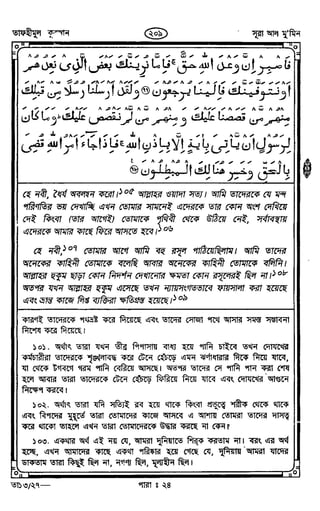 তাফহীমুল কুরআন
২০৯
সূরা আল মু'মিন
فَاصْبِرْ إِنَّ وَعْدَ اللَّهِ حَقٌّ ۚ فَإِمَّا نُرِيَنَّكَ بَعْضَ الَّذِي نَعِدُهُمْ
أَوْ نَتَوَفَّيَنَّكَ فَإِلَيْنَا يُرْجَعُونَ ﴿٧٧﴾ وَلَقَدْ أَرْسَلْنَا رُسُلًا مِّن قَبْلِكَ
مِنْهُم مَّن قَصَصْنَا عَلَيْكَ وَمِنْهُم مَّن لَّمْ نَقْصُصْ عَلَيْكَ ۗ وَمَا كَانَ
لِرَسُولٍ أَن يَأْتِيَ بِآيَةٍ إِلَّا بِإِذْنِ اللَّهِ ۚ فَإِذَا جَاءَ أَمْرُ اللَّهِ قُضِيَ
بِالْحَقِّ وَخَسِرَ هُنَالِكَ الْمُبْطِلُونَ ﴿٧٨﴾
হে নবী, ধৈর্য অবলম্বন করো। ১০৫ আল্লাহর ওয়াদা সত্য। আমি তাদেরকে যে মন্দ
পরিণতির ভয় দেখাচ্ছি এখন তোমার সামনেই এদেরকে তার কোন অংশ দেখিয়ে
দেই কিংবা (তার আগেই) তোমাকে পৃথিবী থেকে উঠিয়ে নেই, সর্বাবস্থায়
এদেরকে আমার কাছে ফিরে আসতে হবে। ১০৬
হে নবী, ১০৭ তোমার আগে আমি বহু রসূল পাঠিয়েছিলাম। আমি তাদের
অনেকের কাহিনী তোমাকে বলেছি আবার অনেকের কাহিনী তোমাকে বলিনি।
আল্লাহর হুকুম ছাড়া কোন নিদর্শন দেখানোর ক্ষমতা কোন রসূলেরই ছিল না। ১০৮
অতপর যখন আল্লাহর হুকুম এসেছে তখন ন্যায়সংগতভাবে ফায়সালা করা হয়েছে
এবং ভ্রান্ত কাজে লিপ্ত ব্যক্তিরা ক্ষতিগ্রস্ত হয়েছে। ১০৯
কারণই তাদেরকে পথভ্রষ্ট করে দিয়েছে এবং তাদের সোজা পথে আসার সমস্ত সম্ভাবনা
নিঃশেষ করে দিয়েছে।
১০১. অর্থাৎ তারা যখন তীব্র পিপাসায় বাধ্য হয়ে পানি চাইবে তখন দোযখের
কর্মচারীরা তাদেরকে শৃঙ্খলাবদ্ধ করে টেনে হেঁচড়ে এমন ঝর্ণাধারার দিকে নিয়ে যাবে,
যা থেকে টগবগে গরম পানি বেরিয়ে আসছে। অতপর তাদের সে পানি পান করা শেষ
হলে আবার তারা তাদেরকে টেনে হেঁচড়ে ফিরিয়ে নিয়ে যাবে এবং দোযখের আগুনে
নিক্ষেপ করবে।
১০২. অর্থাৎ তারা যদি সত্যিই রব হয়ে থাকে কিংবা প্রভুত্বে শরীক থেকে থাকে
এবং বিপদের মুহূর্তে তারা তোমাদের কাজে আসবে এ আশায় তোমরা তাদের দাসত্ব
করে থাকো তাহলে এখন তারা তোমাদেরকে উদ্ধার করছে না কেন?
১০৩. একথার অর্থ এই নয় যে, আমরা দুনিয়াতে শিরক করতাম না। বরং এর অর্থ
হচ্ছে, এখন আমাদের কাছে একথা পরিষ্কার হয়ে গেছে যে, দুনিয়ায় আমরা যাদের
ডাকতাম তারা কিছুই ছিল না, নগণ্য ছিল, মূল্যহীন ছিল।
তাঃ ১৩/২৭—
পারা : ২৪